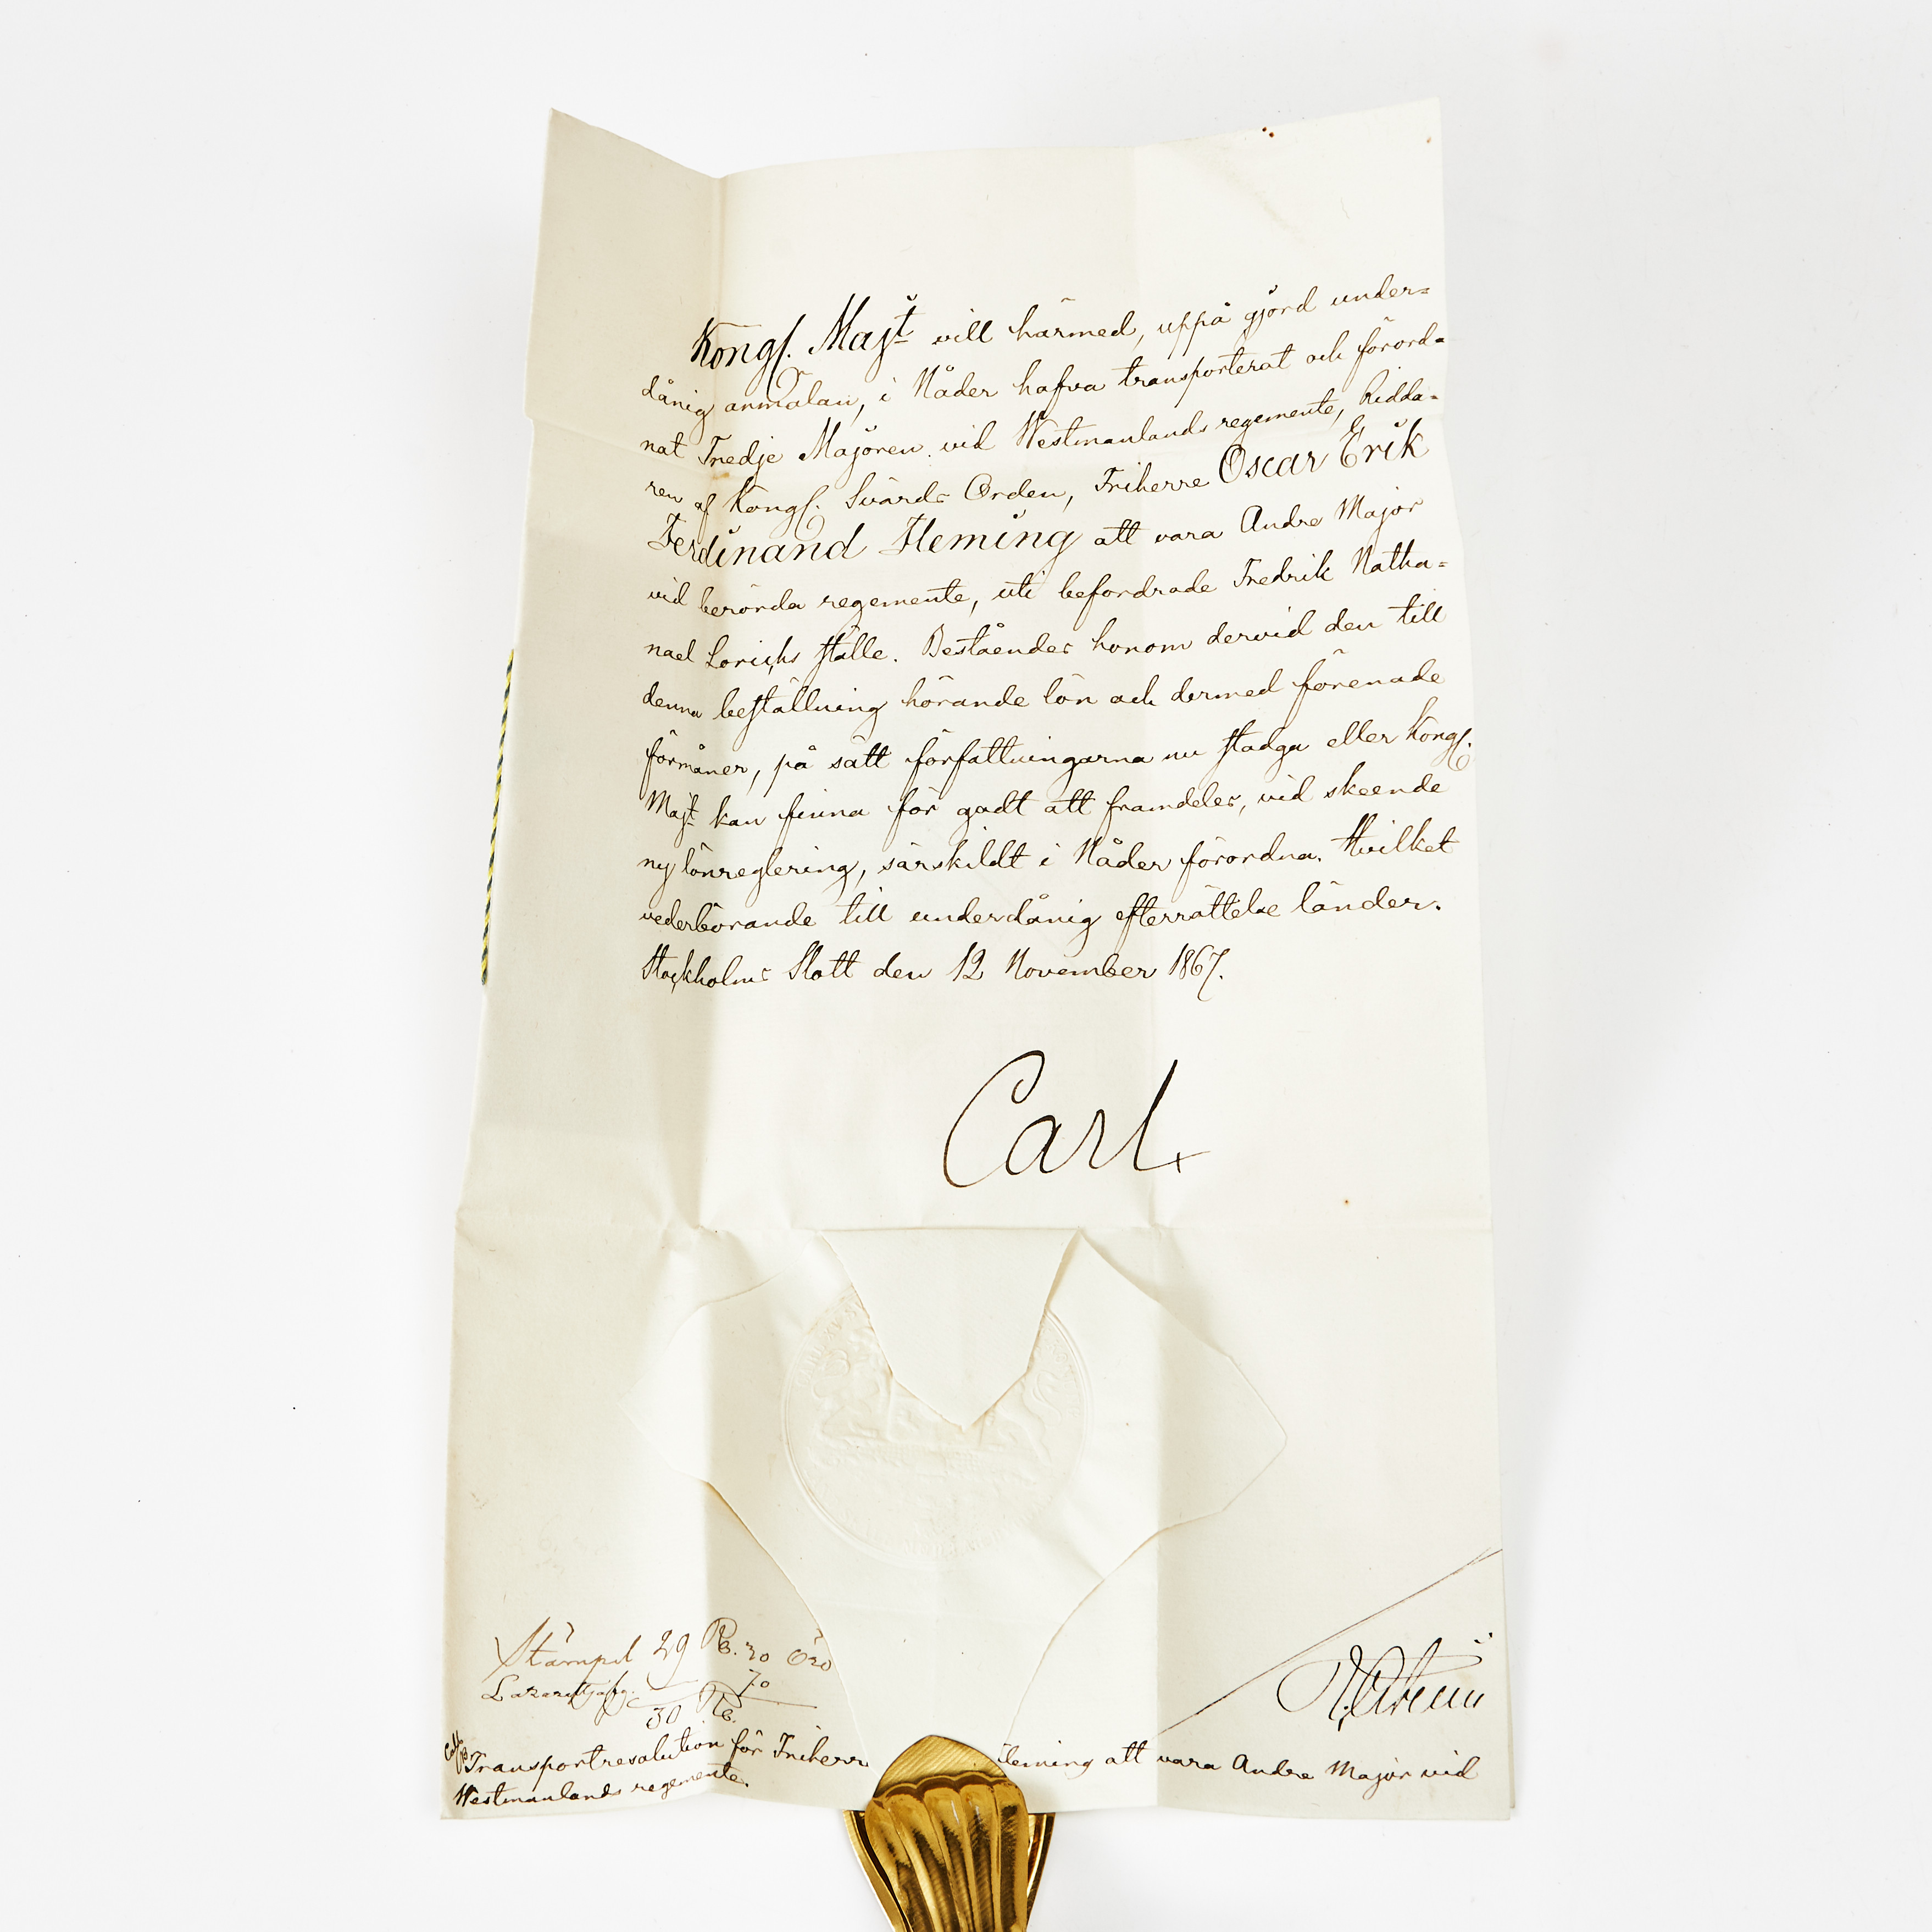 Kongl. Maj:t vill härmed, uppå gjord under=
dånig anmälan, i Nåder hafva transporterat och förord=
nat Tredje Majoren vid Westmanlands regemente, Ridda=
ren af Kongl. Svärds Orden, Friherre Oscar Erik
Ferdinand Fleming att vara Andre Major
vid berörda regemente, uti befordrade Fredrik Natha=
nael Lorichs ställe. Beståendes honom dervid den till
denna beställning hörande lön och dermed förenade
förmåner, på sätt författningarna nu stadga eller Kongl.
Maj:t kan finna för godt att framdeles, vid skeende
ny lönreglering, särskildt i Nåder förordna. Hvilket
vederbörande till underdånig efterrättelse länder.
Stockholms Slott den 12 November 1867.
Carl
Stämpel 29 Rd. 30 Öre
70
30 Rd.
Transportresolution för Friherre Fleming att vara Andre Major vid
Westmanlands regemente.